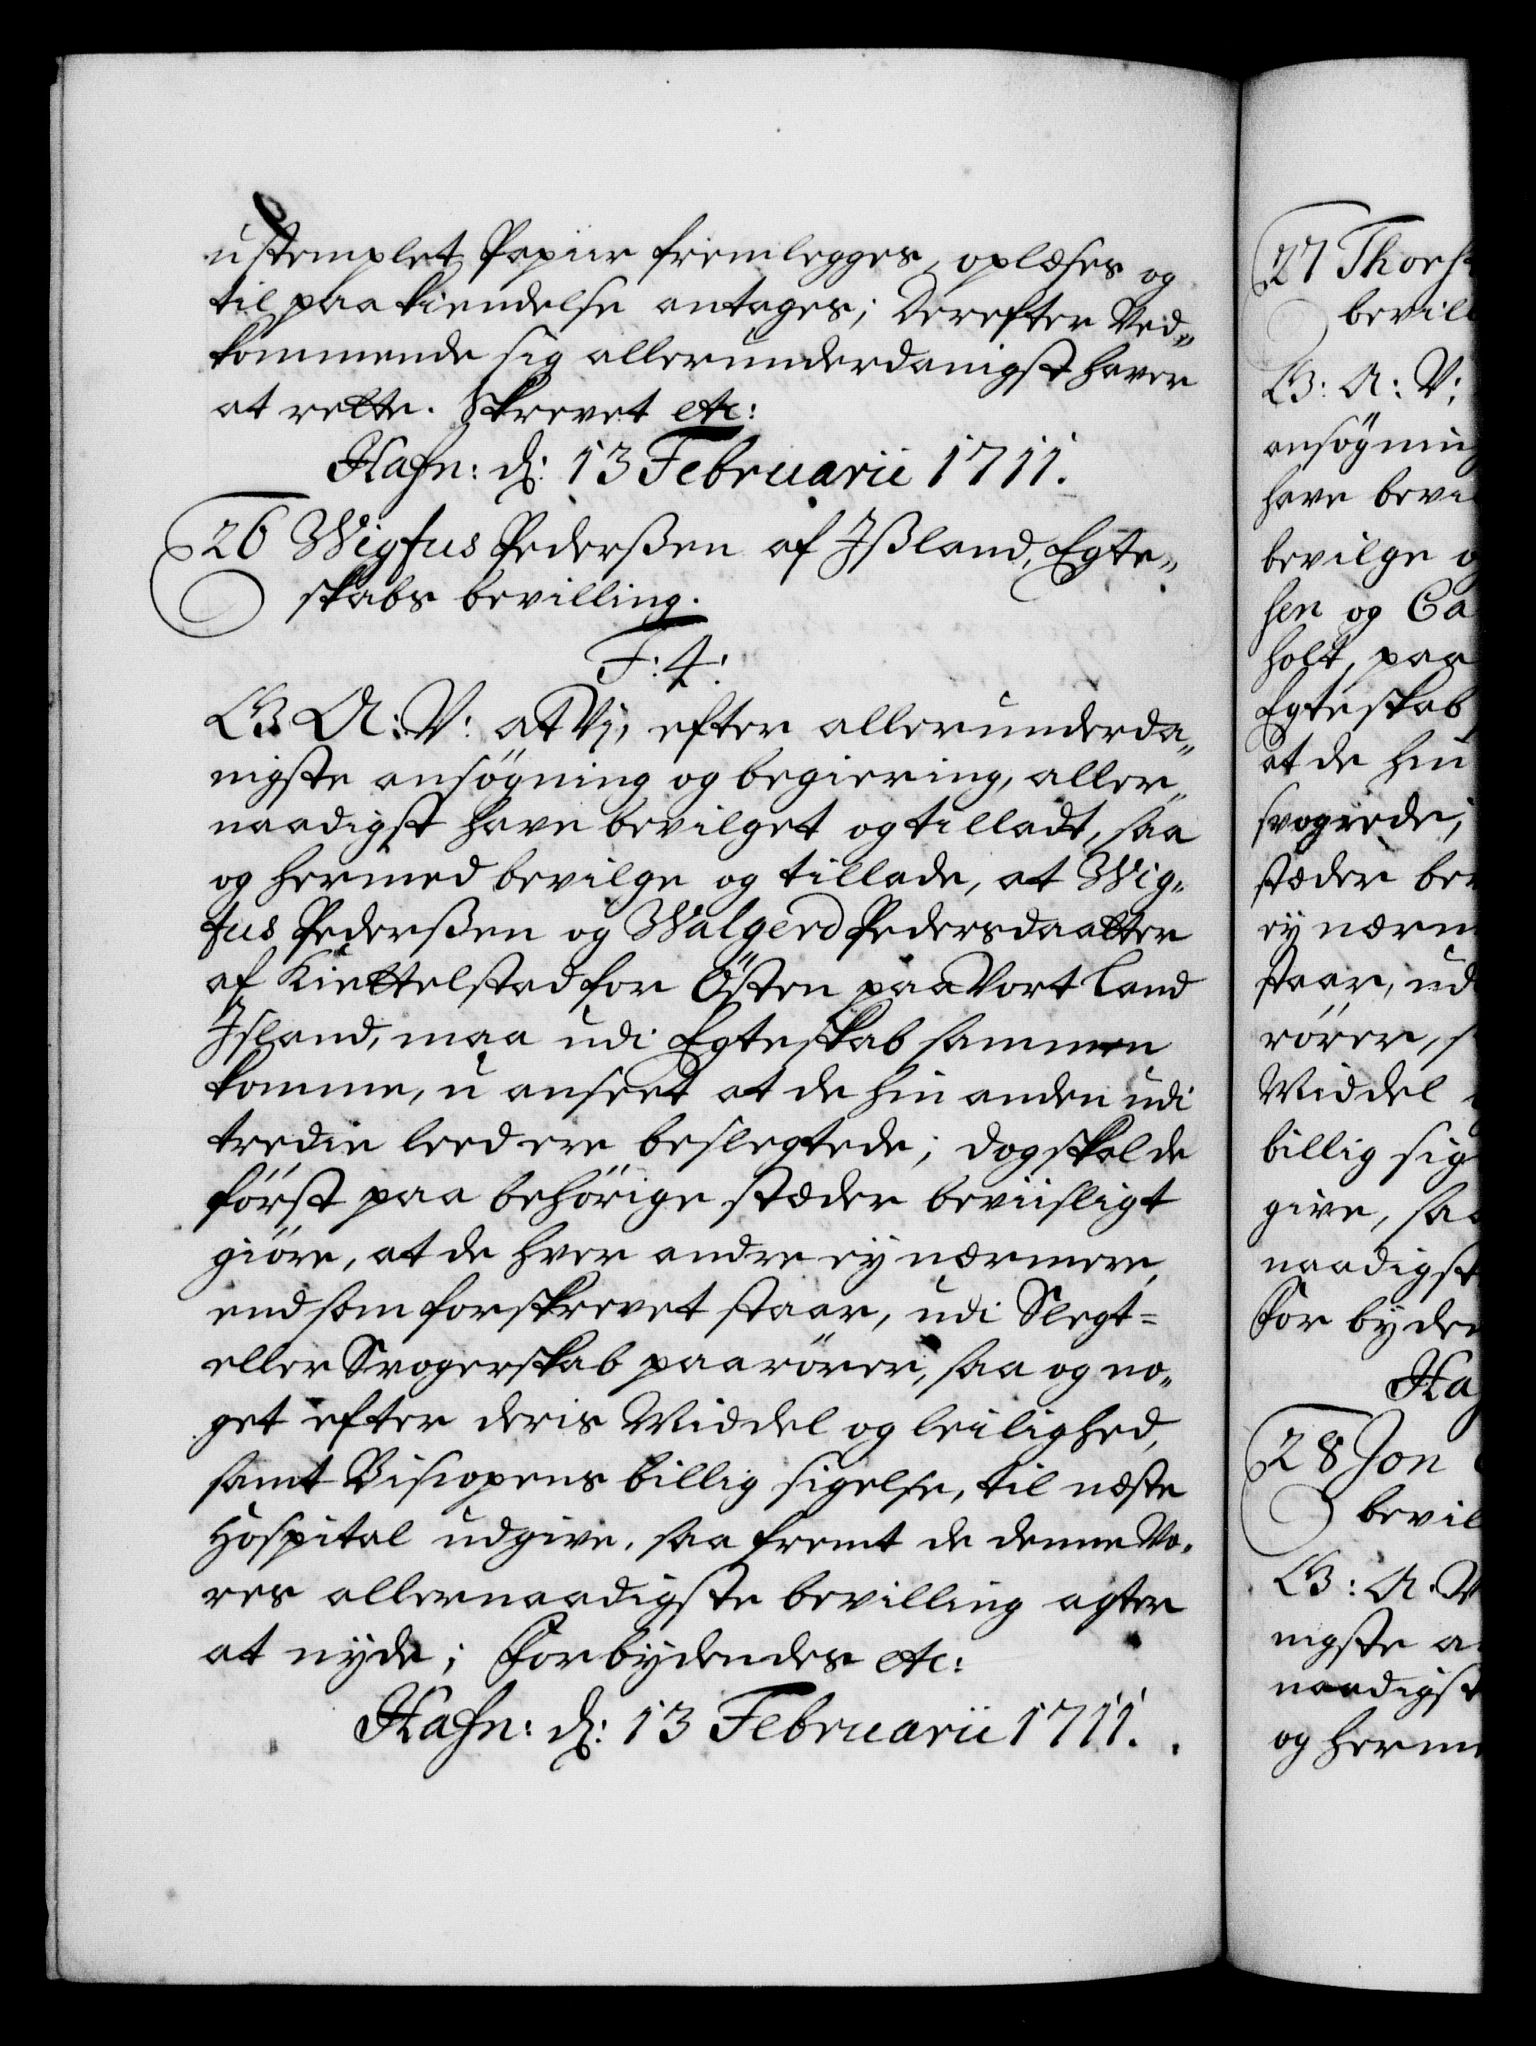 ustemplet Papiir fremlegges, oplæses og
til paakiendelse antages; Derefter Ved„
kommende sig allerunderdanigst haver
at rette. Skrevet etc:
Hafn: d: 13 Februarii 1711.
26 Wigfus Pederßen af Ißland, Egte„
skabs bevilling.
F: 4:
G. A: V: at Vj, efter allerunderda„
nigste ansøgning og begiering, aller„
naadigst have bevilget og tilladt, saa
og hermed bevilge og tillade, at Wig„
fus Pederßen og Walgerd Pedersdaatter
af Kiettelstad for Östen paa Vort Land
Island, maa udi Egteskab sammen
komme, u anseet at de hin anden udi
tredie leed ere beslegtede; dog skal de
först paa behörige stæder beviisligt
giöre, at de hver andre ey nærmere,
end som forskrevet staar, udi Slegt=
eller Svogerskab paarörer, saa og no„
get efter deris Middel og leilighed,
samt Biscopens billig sigelse, til næste
Hospital udgive, saa fremt de denne Vo„
res allernaadigste bevilling agter
at nyde; Forbydendes etc:
Hafn: d: 13 Februarii 1711.
27 Thorst
bevill
G: A: V:
ansøgning
have bevi
bevilge o
sen og Ca
holt, paa
Egteskab
at de hin
svogrede;
stæder be
ey nærm
staar, ud
rörer, s
Middel
billig sig
give, saa
naadigst
Forbyden
Haf
28 Jon
bevil
G: A: V
nigste a
naadigst
og herme